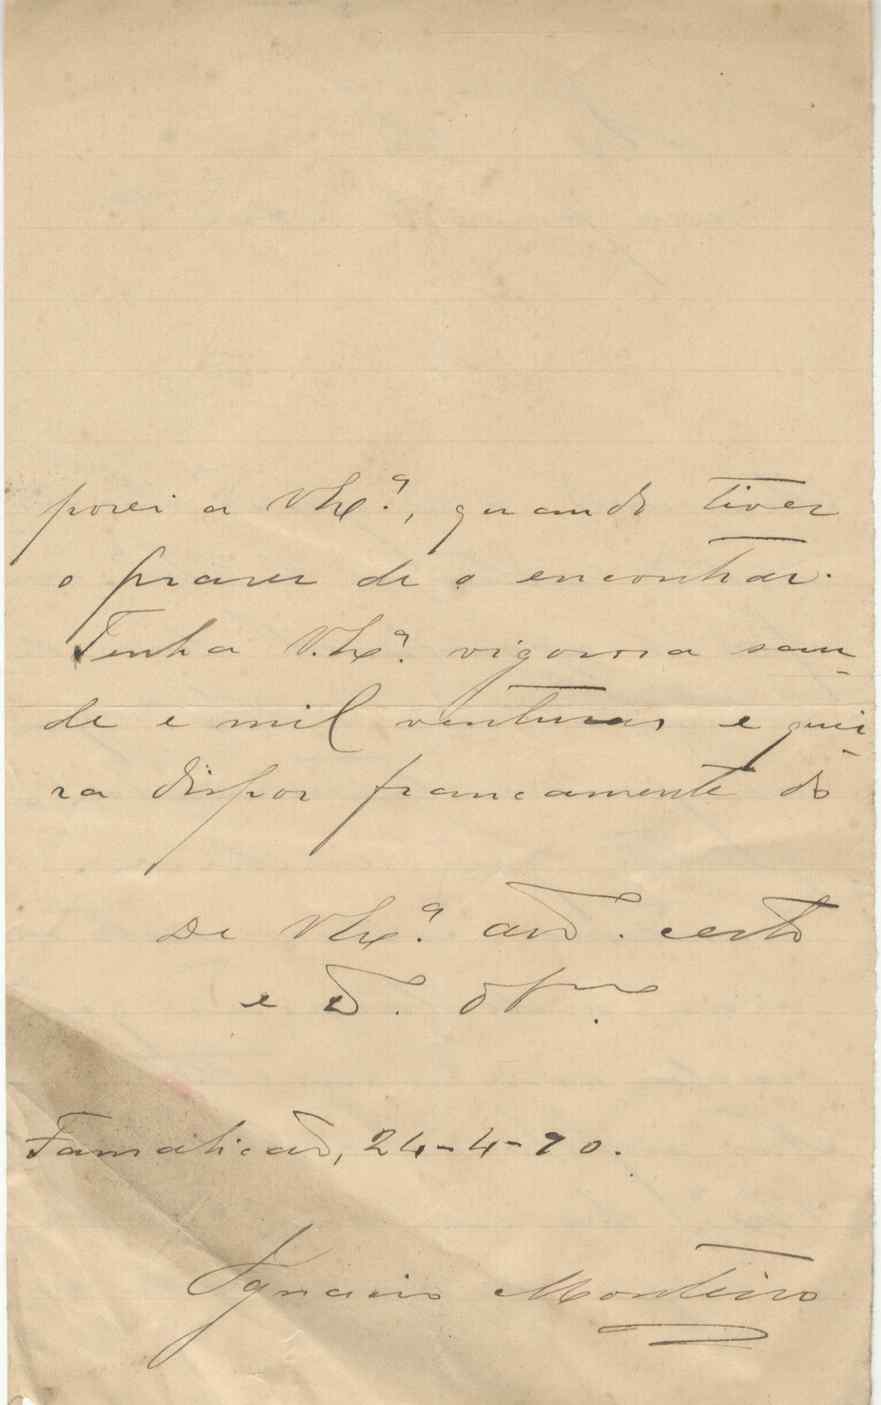 porei a V Ex.ª, quando tiver
o praser de o encontrar.
Tenha V. Ex.ª vigorosa sau-
de e mil venturas e quei-
ra dispor francamente do
De V Ex.ª am.º certo
e
Famalicão, 24-4-90.
Ignacio Monteiro